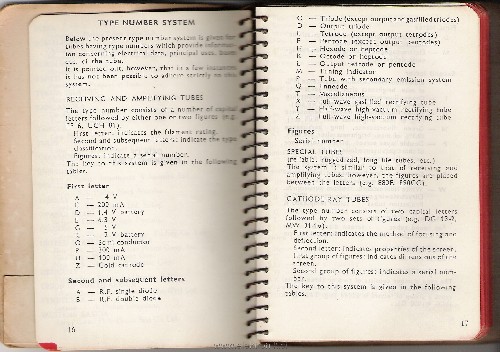 TYPE NUMBER SYSTEM
Below, the present type number system is given for
tubes having type numbers which provide informa-
tion concerning electrical data, principal use,
out of the tube.
It is pointed out, however, that in a few instances
it has not been possible to adhere strictly to this
system.
RECEIVING AND AMPLIFYING TUBES
The type number consists of a number of capital
letters followed by either one or two figures (e.g.
First letter: indicates the filament rating.
Second and subsequent letters: indicate the type
classification.
Figures: indicate a serial number.
The key to this system is given in the following
tables.
First letter
A — 4 V
C — 200 mA
D — 1.4 V battery
E — 6.3 V
G — 5 V
K — 2 V battery
O — Semi conductor
P — 300 mA
U — 100 mA
Z — Cold cathode
Second and subsequent letters
A — R.F. single diode
B — R.F. double diode
16
C — Triode (except output or gasfilled triodes)
D — Output triode
E — Tetrode (except output tetrodes)
F — Pentode (except output pentodes)
H — Hexode or heptode
K — Octode or heptode
L — Output tetrode or pentode
M — Tuning indicator
P — Tube with secondary emission system
Q — Enneode
T — Miscellaneous
X — Full-wave gasfilled rectifying tube
Y — Half-wave high-vacuum rectifying tube
Z — Full-wave high-vacuum rectifying tube
Figures
Serial number
SPECIAL TUBES
(reliable, ruggedized, long life tubes, etc.)
The system is similar to that of receiving and
amplifying tubes. However, the figures are placed
between the letters (e.g. E80F, E80CC).
CATHODE RAY TUBES
The type number consists of two capital letters
followed by two sets of figures (e.g. DG 13-2,
First letter: indicates the method of focusing and
deflection.
Second letter: indicates properties of the screen.
First group of figures: indicates dimensions of the
screen.
Second group of figures: indicates a serial num-
ber.
The key to this system is given in the following
tables.
17